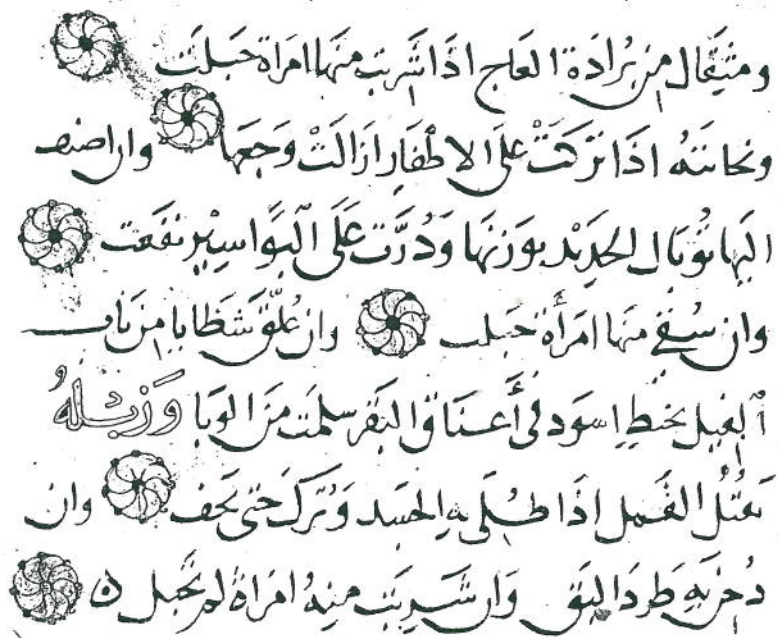 ومثقال من برادة العاج اذا شربت منها امراة حبلت
ونحاتته اذا تركت على الاظفار ازالت وجعها وان اضيف
اليها توبال الحديد بوزنها ودرت على البواسير نفعت
وان سقى منها امرأة حبلت وان علق شظايا من ناب
الفيل بخيط اسود فى أعناق البقر سلمت من الوبا وزبله
يقتل القمل اذا طلى به الجسد وترك حتى يجف وان
دخن به طرد البق وان شربت منه امراة لم تحبل